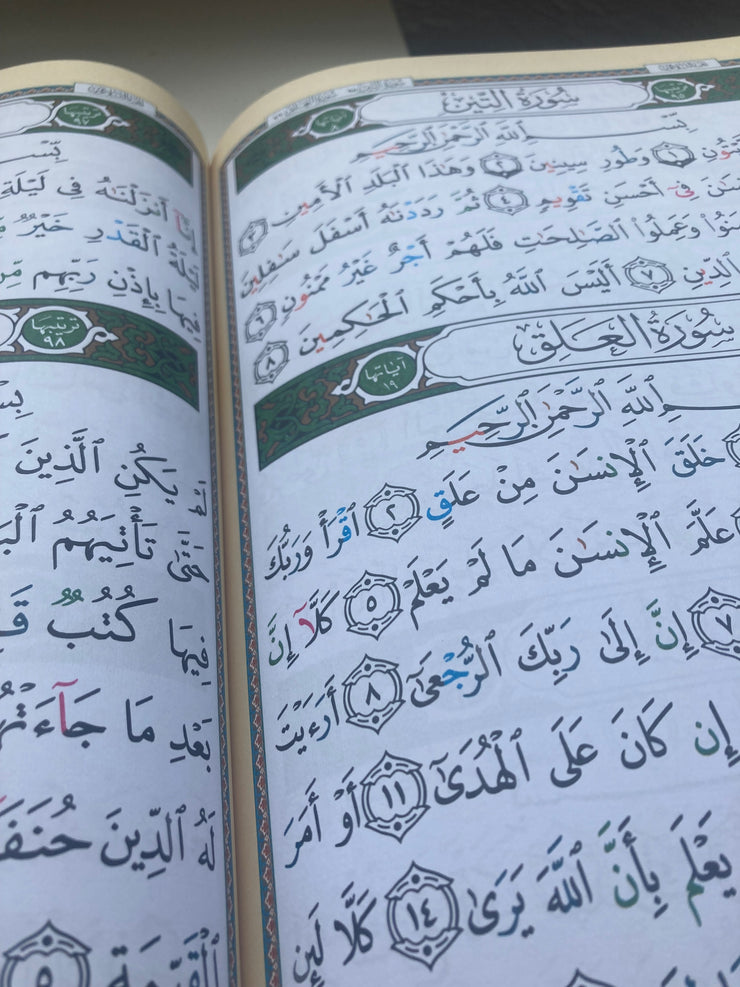 سُورَةُ التِّينِ
آيَاتُهَا ٨
بِسْمِ ٱللَّهِ ٱلرَّحْمَٰنِ ٱلرَّحِيمِ
١ وَطُورِ سِينِينَ ٢ وَهَٰذَا ٱلْبَلَدِ ٱلْأَمِينِ ٣
فِىٓ أَحْسَنِ تَقْوِيمٍ ٤ ثُمَّ رَدَدْنَٰهُ أَسْفَلَ سَٰفِلِينَ
وَعَمِلُوا۟ ٱلصَّٰلِحَٰتِ فَلَهُمْ أَجْرٌ غَيْرُ مَمْنُونٍ ٦
ٱلدِّينِ ٧ أَلَيْسَ ٱللَّهُ بِأَحْكَمِ ٱلْحَٰكِمِينَ ٨
سُورَةُ العَلَقِ
آيَاتُهَا ١٩
ٱللَّهِ ٱلرَّحْمَٰنِ ٱلرَّحِيمِ
خَلَقَ ٱلْإِنسَٰنَ مِنْ عَلَقٍ ٢ ٱقْرَأْ وَرَبُّكَ
عَلَّمَ ٱلْإِنسَٰنَ مَا لَمْ يَعْلَمْ ٥ كَلَّآ إِنَّ
٧ إِنَّ إِلَىٰ رَبِّكَ ٱلرُّجْعَىٰٓ ٨ أَرَءَيْتَ
إِن كَانَ عَلَى ٱلْهُدَىٰٓ ١١ أَوْ أَمَرَ
يَعْلَم بِأَنَّ ٱللَّهَ يَرَىٰ ١٤ كَلَّا لَئِن
إِنَّآ أَنزَلْنَٰهُ فِى لَيْلَةِ
لَيْلَةُ ٱلْقَدْرِ خَيْرٌ
فِيهَا بِإِذْنِ رَبِّهِم مِّن
تَرْتِيبُهَا ٩٨
لَمْ يَكُنِ ٱلَّذِينَ
حَتَّىٰ تَأْتِيَهُمُ
فِيهَا كُتُبٌ
بَعْدِ مَا جَآءَتْهُمُ
لَهُ ٱلدِّينَ حُنَفَآءَ
ٱلْقَيِّمَةِ ٥